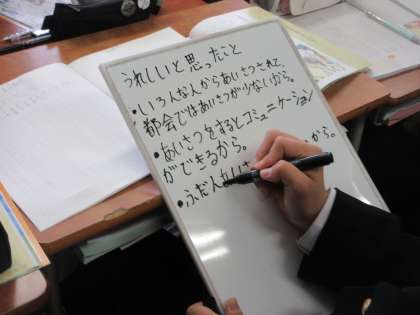 うれしいと思ったこと
・いろんな人からあいさつされて、
都会ではあいさつが少ないから。
・あいさつをするとコミュニケーション
ができるから。
・ふだんあいさ から。